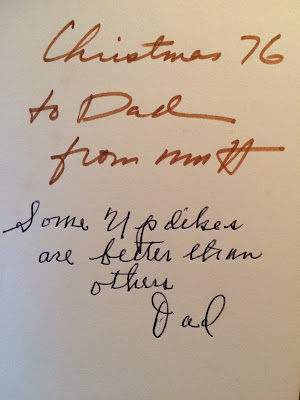 Christmas 76
to Dad
from Matt
Some Updikes
are better than
others
Dad